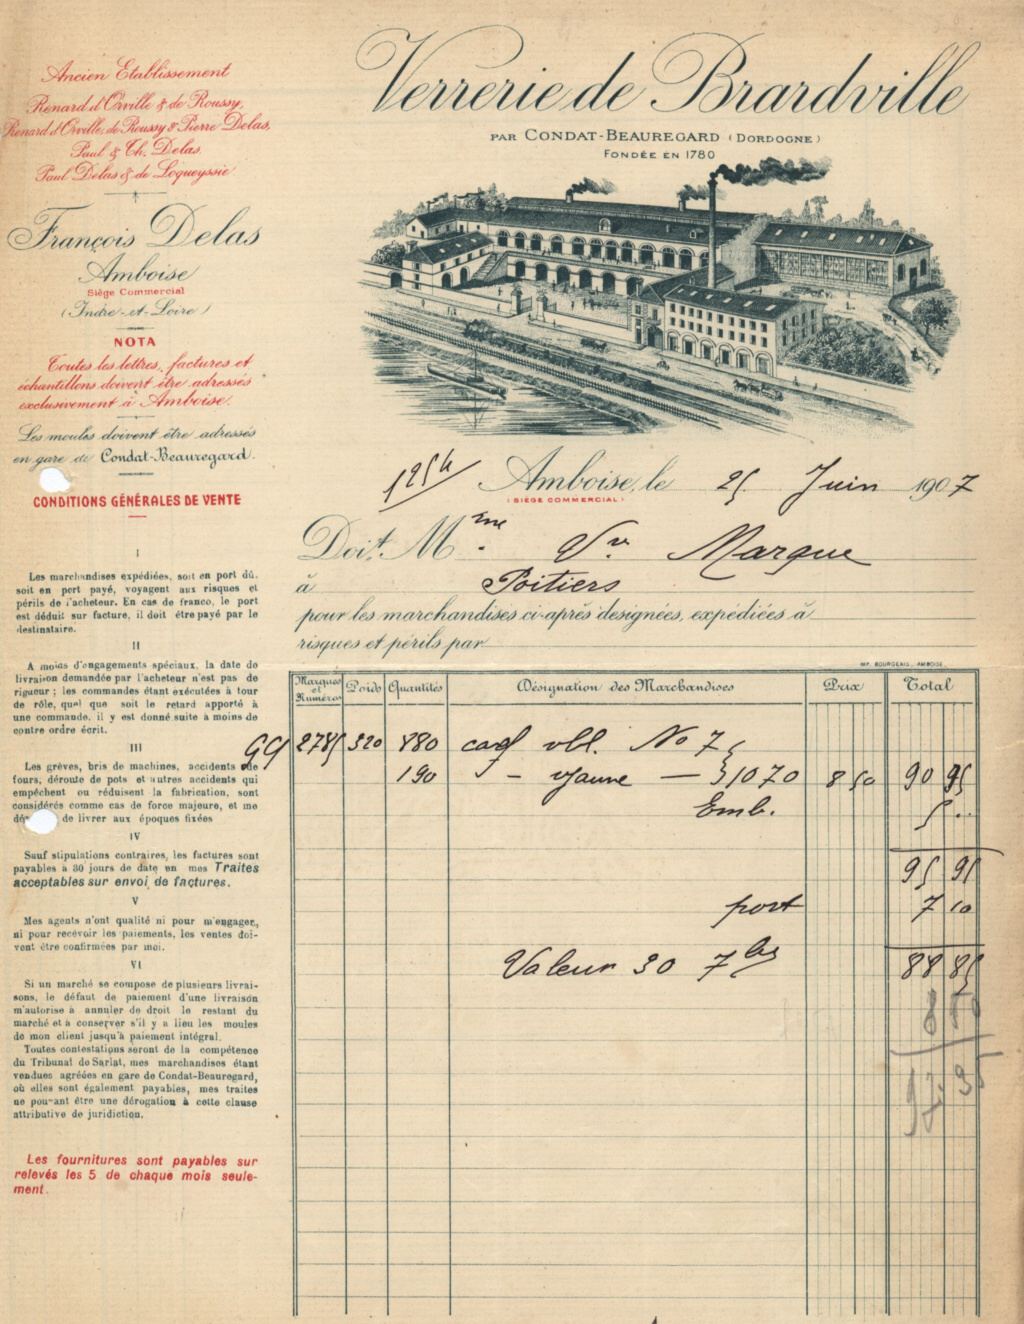 Verrerie de Brardville
PAR CONDAT-BEAUREGARD (DORDOGNE)
FONDÉE EN 1780
Ancien Etablissement
Renard d'Orville & de Roussy,
Renard d'Orville, de Roussy & Pierre Delas,
Paul & Th. Delas,
Paul Delas & de Loqueyssie
François Delas
Amboise
Siège Commercial
(Indre-et-Loire)
NOTA
Toutes les lettres, factures et
échantillons doivent être adressés
exclusivement à Amboise.
Les moules doivent être adressés
en gare de Condat-Beauregard.
CONDITIONS GÉNÉRALES DE VENTE
I
Les marchandises expédiées, soit en port dû,
soit en port payé, voyagent aux risques et
périls de l'acheteur. En cas de franco, le port
est déduit sur facture, il doit être payé par le
destinataire.
II
A moins d'engagements spéciaux, la date de
livraison demandée par l'acheteur n'est pas de
rigueur ; les commandes étant exécutées à tour
de rôle, quel que soit le retard apporté à
une commande, il y est donné suite à moins de
contre ordre écrit.
III
Les grèves, bris de machines, accidents de
fours, déroute de pots et autres accidents qui
empêchent ou réduisent la fabrication, sont
considérés comme cas de force majeure, et me
de livrer aux époques fixées
IV
Sauf stipulations contraires, les factures sont
payables à 30 jours de date en mes Traites
acceptables sur envoi de factures.
V
Mes agents n'ont qualité ni pour m'engager,
ni pour recevoir les paiements, les ventes doi-
vent être confirmées par moi.
VI
Si un marché se compose de plusieurs livrai-
sons, le défaut de paiement d'une livraison
m'autorise à annuler de droit le restant du
marché et à conserver s'il y a lieu les moules
de mon client jusqu'à paiement intégral.
Toutes contestations seront de la compétence
du Tribunal de Sarlat, mes marchandises étant
vendues agréées en gare de Condat-Beauregard,
où elles sont également payables, mes traites
ne pouvant être une dérogation à cette clause
attributive de juridiction.
Les fournitures sont payables sur
relevés les 5 de chaque mois seule-
ment.
Amboise, le 25 Juin 1907
(SIÈGE COMMERCIAL)
Doit Mme Vve Marque
à Poitiers
pour les marchandises ci-après designées, expédiées à
risques et périls par
IMP. BOURGEAIS, AMBOISE.
Marques et Numéros Poids Quantités Désignation des Marchandises Prix Total
GG 2785 320 880 vbl. No 7
190 - yjaune - 1070 8 50 90 95
Emb. 5 ..
95 95
port 7 10
Valeur 30 7bre 88 85